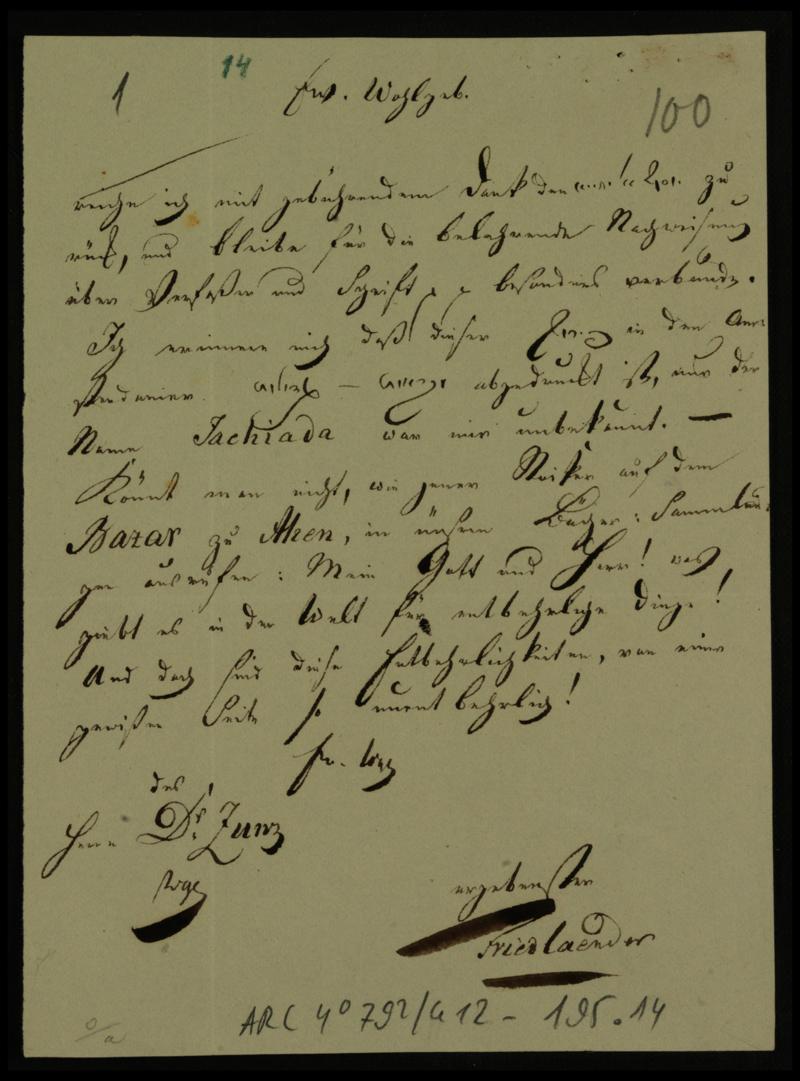 14
1
Ew. Wohlgeb.
100
reiche ich mit gebührendem Dank den zu
rück, und bleibe für die belehrende Nachweisung
über Verfaßer und Schrift besonders verbunden.
Ich erinnere mich daß dieser in den Am
sterdamer abgedruckt ist, nur der
Name Jachiada war mir unbekannt. —
Könnt man nicht, wie jener Stoiker auf dem
Bazar zu Athen, in unsern Bücher: Sammlun
gen ausrufen: Mein Gott und Herr! was
giebt es in der Welt für entbehrliche Dinge!
Und doch sind diese Entbehrlichkeiten, von einer
gewißen Seite so unentbehrlich!
Ew. Wgb
des
Herrn Dr. Zunz
Wgb
ergebenster
Friedlaender
ARC 4° 792/G12 - 195.14